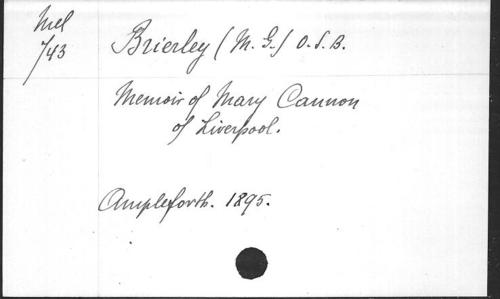 Mel
743
Brierley (M. G.) O.S.B.
Memoir of Mary Cannon
of Liverpool.
Ampleforth. 1895.